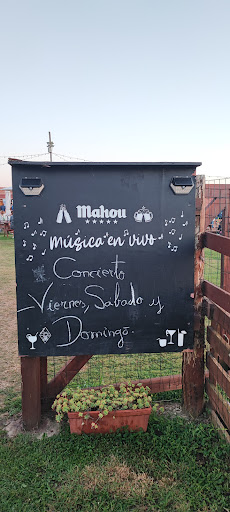 Mahou
Música en vivo
Concierto
-Viernes, Sabado y
Domingo.